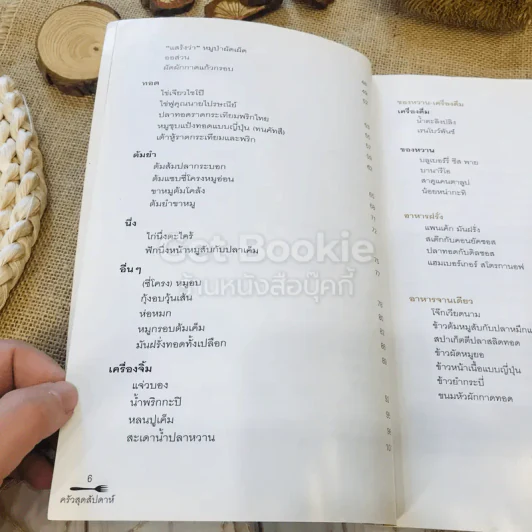 "แสร้งว่า" หมูป่าผัดเผ็ด
ออส่วน
ผัดผักกาดแก้วกรอบ
ทอด
ไข่เจียวโชโย๊
ไข่ฟูคุณนายไปรษณีย์
ปลาทอดราดกระเทียมพริกไทย
หมูชุบแป้งทอดแบบญี่ปุ่น (ทนคัทสึ)
เต้าหู้ราดกระเทียมและพริก
ต้มยำ
ต้มส้มปลากระบอก
ต้มแซบซี่โครงหมูอ่อน
ขาหมูต้มโคล้ง
ต้มยำขาหมู
นึ่ง
ไก่นึ่งตะไคร้
ฟักนึ่งหน้าหมูสับกับปลาเค็ม
อื่นๆ
(ซี่โครง) หมูอบ
กุ้งอบวุ้นเส้น
ห่อหมก
หมูกรอบต้มเค็ม
มันฝรั่งทอดทั้งเปลือก
เครื่องจิ้ม
แจ่วบอง
น้ำพริกกะปิ
หลนปูเค็ม
สะเดาน้ำปลาหวาน
6
ครัวสุดสัปดาห์
ของหวาน-เครื่องดื่ม
เครื่องดื่ม
น้ำตะลิงปลิง
เลมันวีพันช์
ของหวาน
บลูเบอร์รี่ ชีส พาย
บานาริโอ
สาคูแคนตาลูป
น้อยหน่ากะทิ
อาหารฝรั่ง
แพนเค้ก มันฝรั่ง
สเต๊กกับคอนยัคซอส
ปลาทอดกับดิลซอส
แฮมเบอร์เกอร์ สโตรกานอฟ
อาหารจานเดียว
โจ๊กเวียดนาม
ข้าวต้มหมูสับกับปลาหมึกแ
สปาเก็ตตี้ปลาสลิดทอด
ข้าวผัดหมูยอ
ข้าวหน้าเนื้อแบบญี่ปุ่น
ข้าวยำกระบี่
ขนมหัวผักกาดทอด
Bookie
ร้านหนังสือบุ๊คกี้